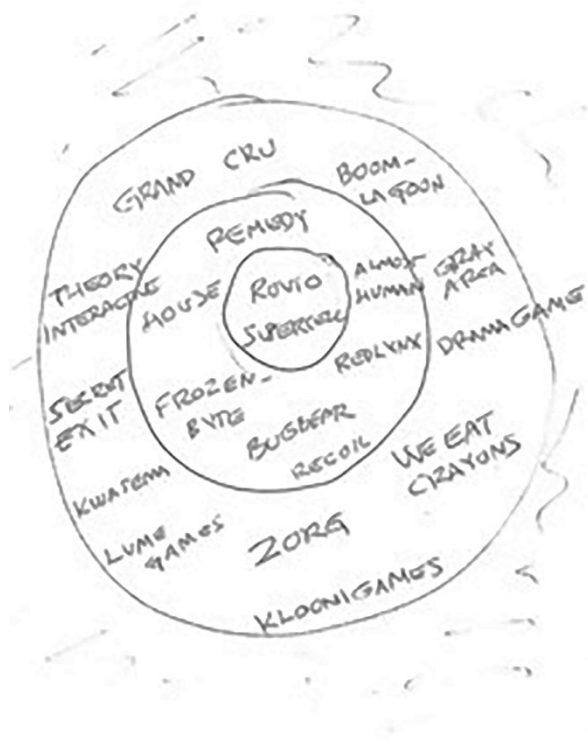 GRAND CRU
BOOM-
LAGOON
REMEDY
THEORY
INTERACTIVE
HOUSE
ROVIO
SUPERCELL
ALMOST
HUMAN
GRAY
AREA
DRAMA GAME
REDLYNX
SECRET
EXIT
FROZEN-
BYTE
BUGBEAR
RECOIL
WE EAT
CRAYONS
KWATEMA
LUME
GAMES
ZORG
KLOONIGAMES